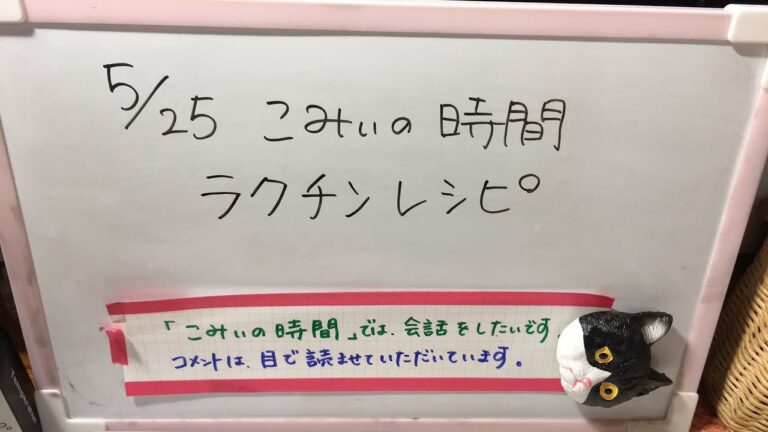 5/25 こみぃの時間
ラクチンレシピ
「こみぃの時間」では、会話をしたいです。
コメントは、目で読ませていただいています。